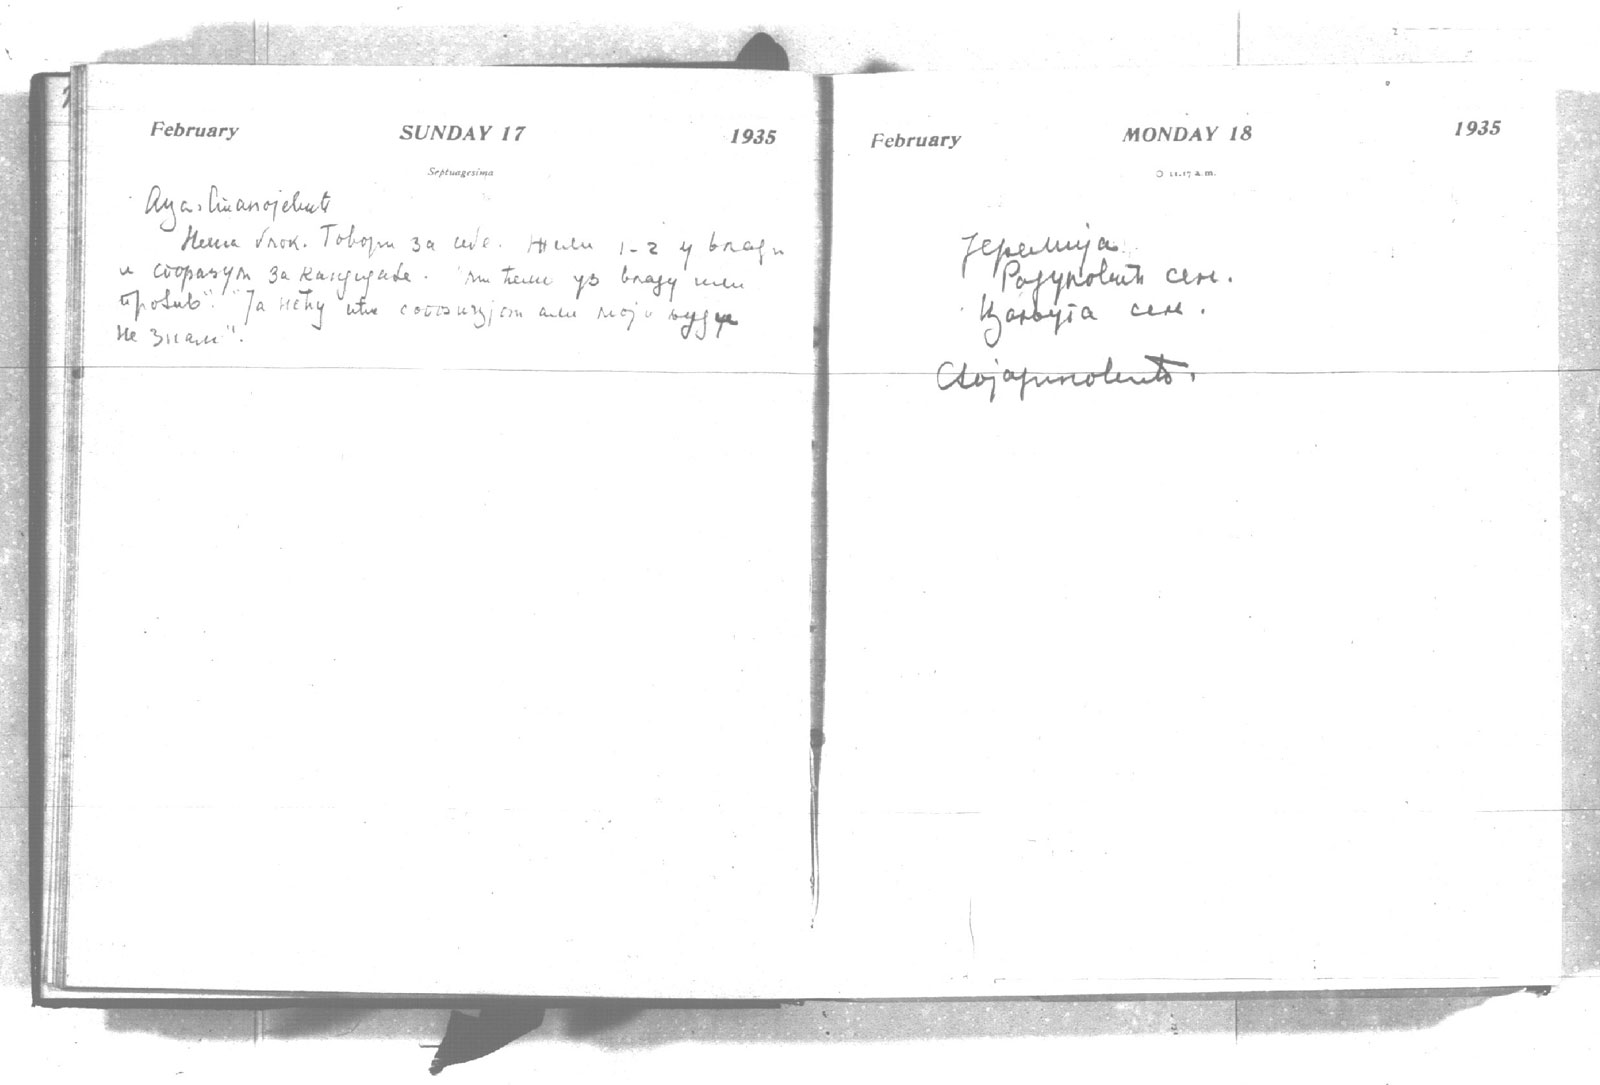 February SUNDAY 17 1935
Septuagesima
Аца Станојевић
Нема блок. Говори за себе. Жели 1-2 у влади
и споразум за кандидате. "Ми ћемо уз владу или
против". "Ја нећу ићи са опозицијом али моји људи
не знам".
February MONDAY 18 1935
○ 11.17 a.m.
Јеремија
Радуловић сен.
сен.
Стојадиновић.